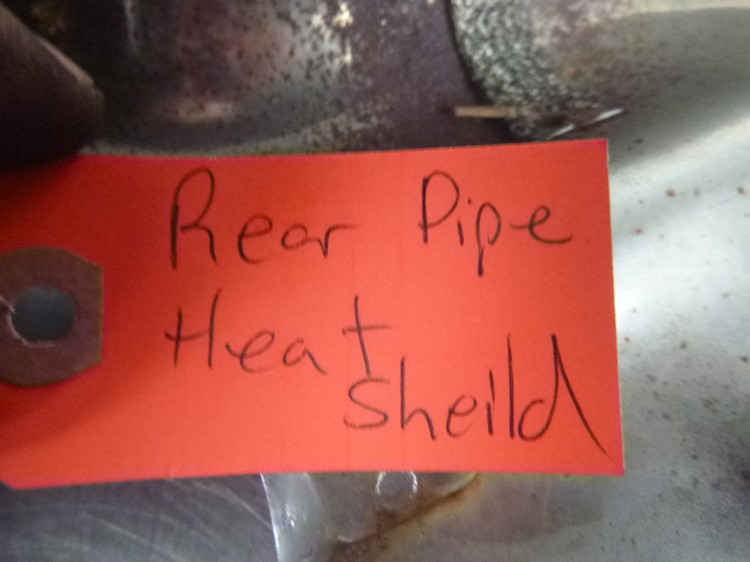 Rear Pipe
Heat
Sheild